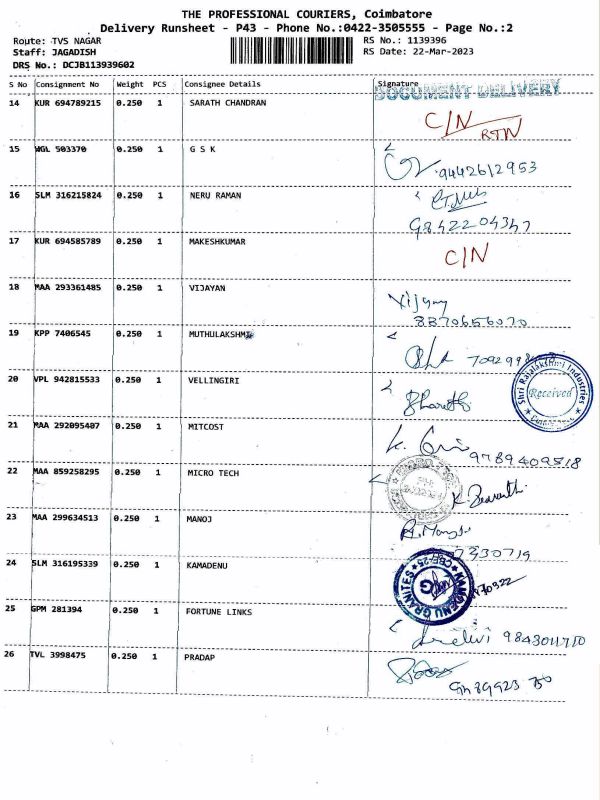 THE PROFESSIONAL COURIERS, Coimbatore
Delivery Runsheet - P43 - Phone No.:0422-3505555 - Page No.:2
Route: TVS NAGAR RS No.: 1139396
Staff: JAGADISH RS Date: 22-Mar-2023
DRS No.: DCJB113939602
S No Consignment No Weight PCS Consignee Details Signature
DOCUMENT DELIVERY
14 KUR 694789215 0.250 1 SARATH CHANDRAN C/N
RTN
15 WGL 503370 0.250 1 G S K 9442612953
16 SLM 316215824 0.250 1 NERU RAMAN
9842204347
17 KUR 694585789 0.250 1 MAKESHKUMAR C/N
18 MAA 293361485 0.250 1 VIJAYAN Vijay
8870656070
19 KPP 7406545 0.250 1 MUTHULAKSHMI
20 VPL 942815533 0.250 1 VELLINGIRI Bharath
Shri Rajalakshmi Industries
Received
21 MAA 292095407 0.250 1 MITCOST 9789409518
22 MAA 859258295 0.250 1 MICRO TECH
23 MAA 299634513 0.250 1 MANOJ
24 SLM 316195339 0.250 1 KAMADENU
KAMDENU GRANITES CBE-25
25 GPM 281394 0.250 1 FORTUNE LINKS
26 TVL 3998475 0.250 1 PRADAP